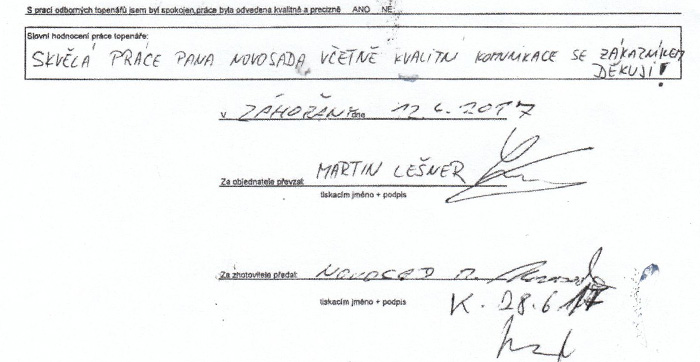 S prací odborných topenářů jsem byl spokojen,práce byla odvedena kvalitně a precizně ANO NE
Slovní hodnocení práce topenáře:
SKVĚLÁ PRÁCE PANA NOVOSADA VČETNĚ KVALITNÍ KOMUNIKACE SE ZÁKAZNÍKEM
DĚKUJI!
V ZÁHOŘANY dne 12.4.2017
Za objednatele převzal: MARTIN LEŠNER
tiskacím jméno + podpis
Za zhotovitele předal: NOVOSAD M.
tiskacím jméno + podpis K. 28.6 17